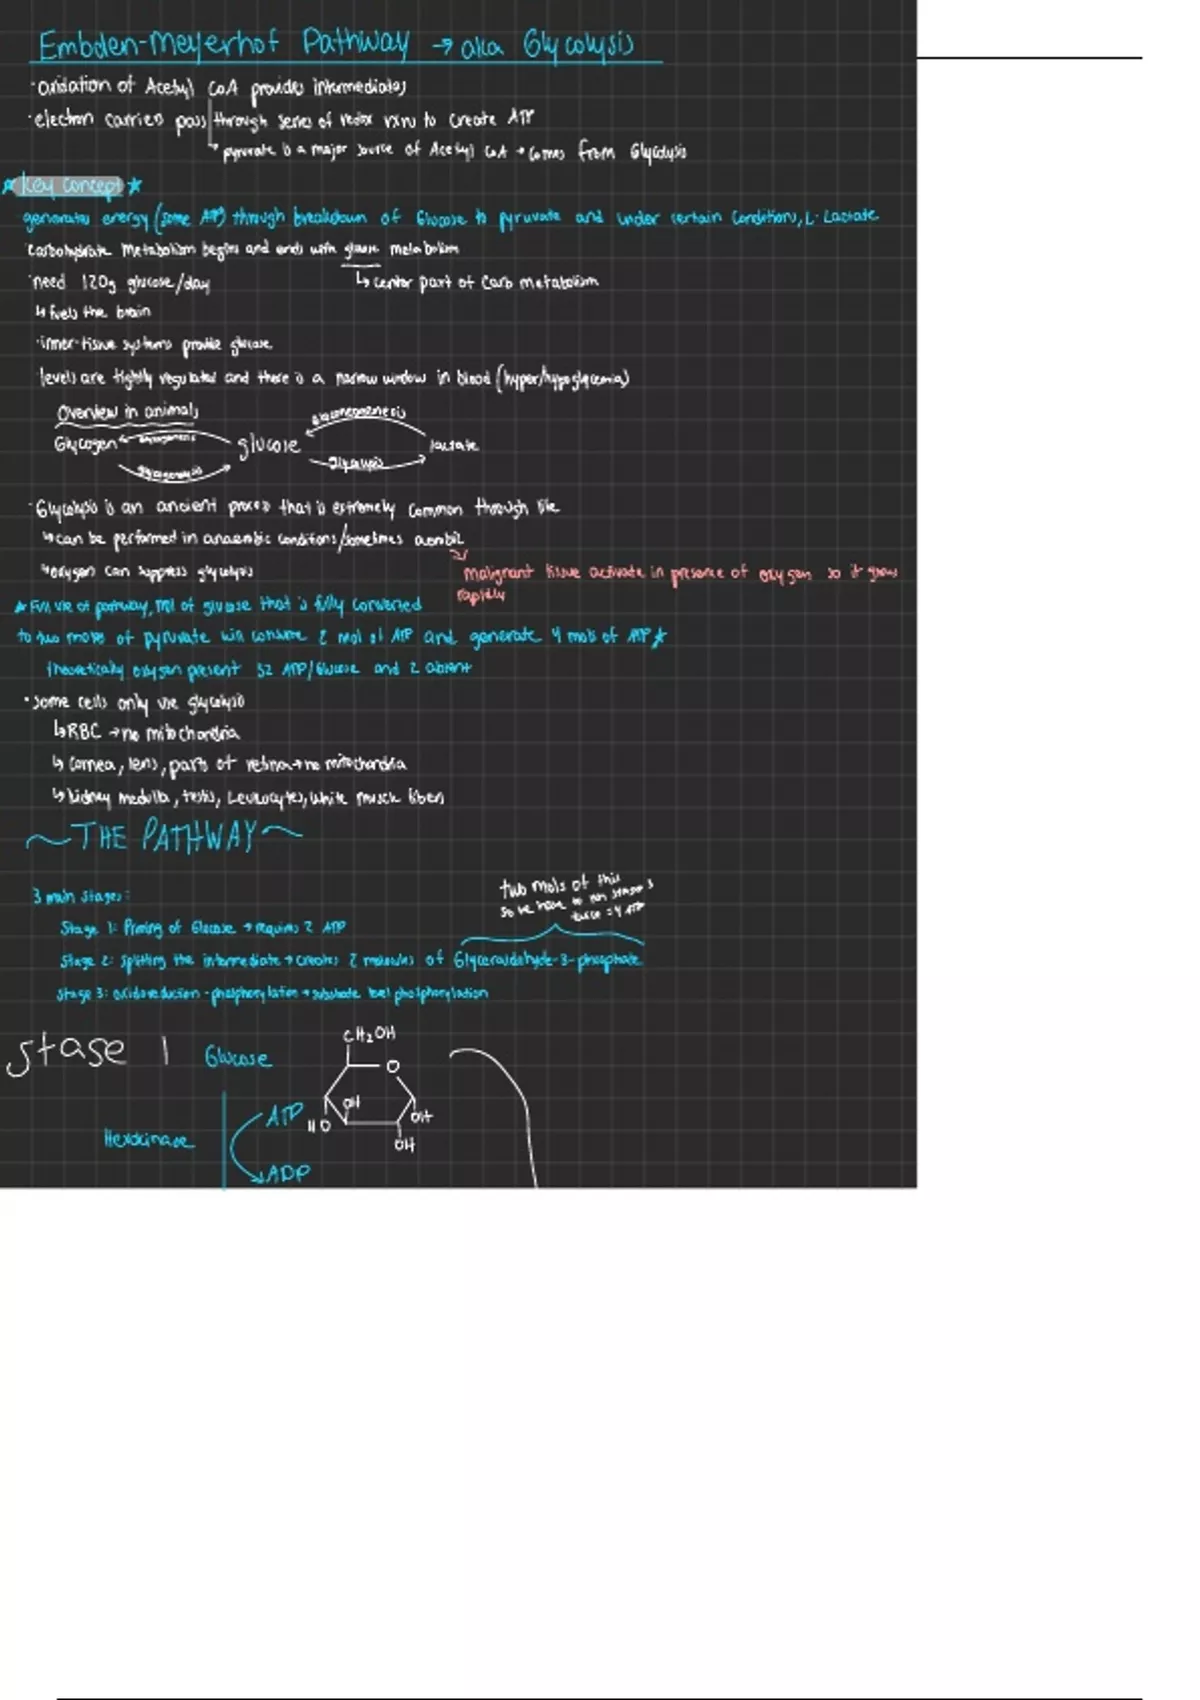 Embden-Meyerhof Pathway → aka Glycolysis
·oxidation of Acetyl CoA provides intermediates
·electron carries pass through series of redox rxns to create ATP
↳ pyruvate is a major source of Acetyl CoA → comes from Glycolysis
★ Key Concept ★
generates energy (some ATP) through breakdown of Glucose to pyruvate and under certain conditions, L-Lactate
Carbohydrate Metabolism begins and ends with glucose metabolism
·need 120g glucose/day ↳ center part of Carb metabolism
↳ fuels the brain
·inner-tissue systems provide glucose
levels are tightly regulated and there is a narrow window in blood (hyper/hypoglycemia)
Overview in animals
gluconeogenesis
Glycogen glucose lactate
glycolysis
·Glycolysis is an ancient process that is extremely common through life
↳ can be performed in anaerobic conditions/sometimes aerobic
↳ oxygen can suppress glycolysis
malignant tissue activate in presence of oxygen so it grows
rapidly
★ Full use of pathway, mol of glucose that is fully converted
to two moles of pyruvate will consume 2 mol of ATP and generate 4 mols of ATP ★
theoretically oxygen present 32 ATP/Glucose and 2 absent
· some cells only use glycolysis
↳ RBC → no mitochondria
↳ cornea, lens, parts of retina → no mitochondria
↳ kidney medulla, testis, Leukocytes, white muscle fibers
~THE PATHWAY~
two mols of this
so we have to run stage 3
twice = 4 ATP
3 main stages:
Stage 1: Priming of Glucose → requires 2 ATP
Stage 2: Splitting the intermediate → creates 2 molecules of Glyceraldehyde-3-phosphate
Stage 3: oxidoreduction-phosphorylation → substrate level phosphorylation
Stage 1 Glucose
CH₂OH
O
OH
HO
OH
OH
Hexokinase
ATP
ADP